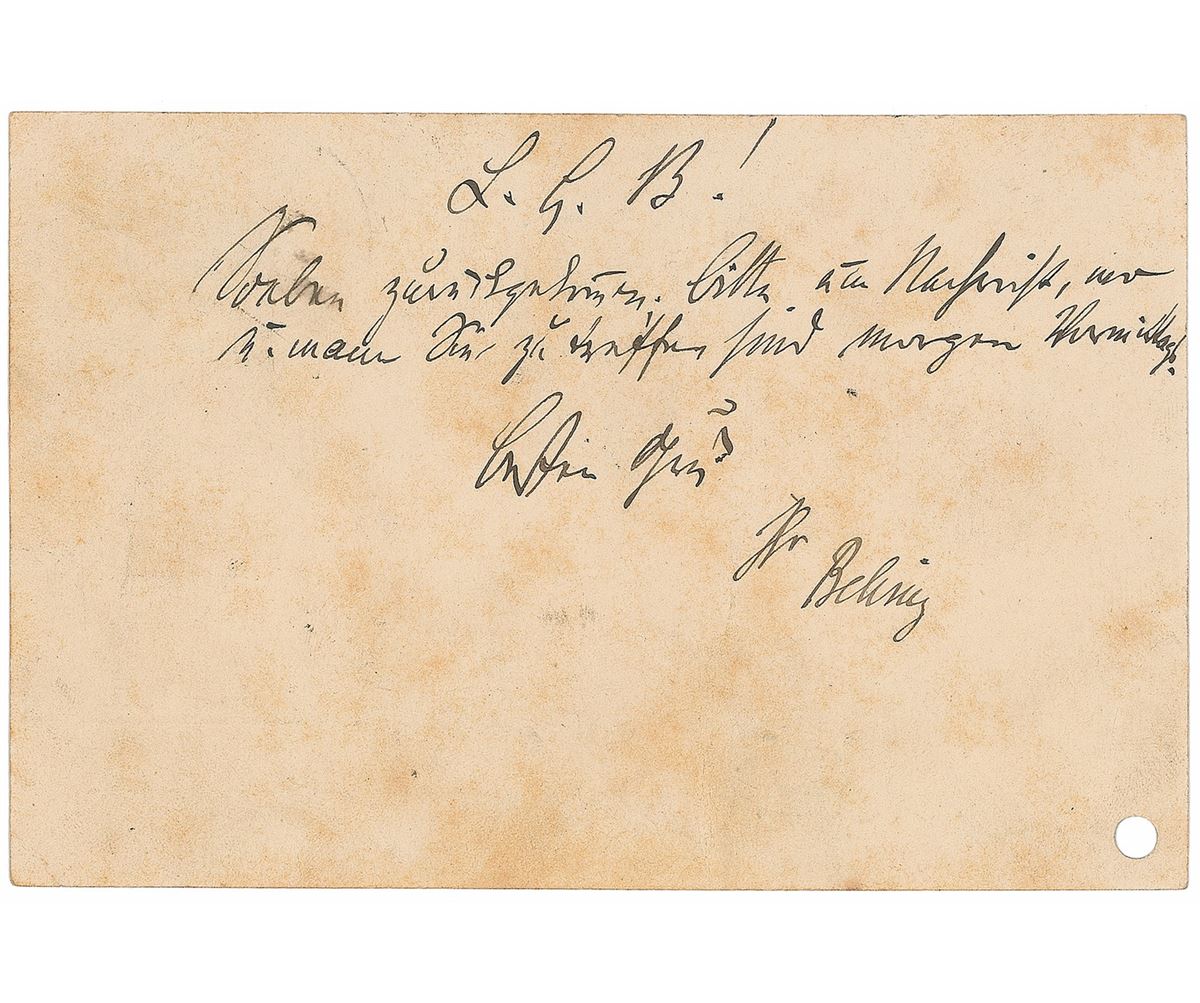 L. H. B.!
Soeben zurückgekommen, bitte um Nachricht, wo
u. wann Sie zu treffen sind morgen Vormittags.
Besten Gruß
Ihr
Behring